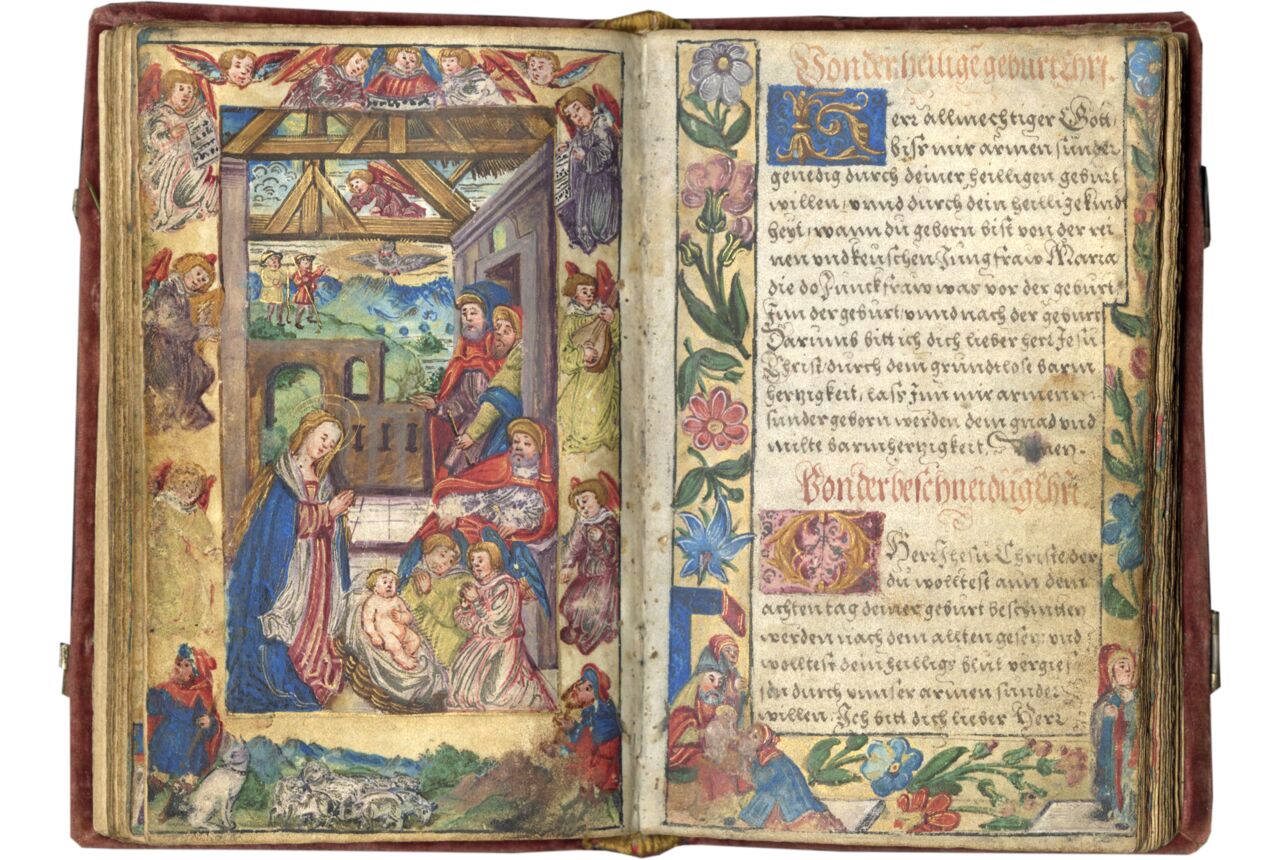 Von der heilige geburt Chri.
Herr allmechtiger Gott
biss mir armen sunder
genedig durch deiner heiligen geburt
willen, vnnd durch dein heilige kind
heyt, wann du geborn bist von der rei
nen vnd keuschen Jungfraw Maria
die do Junckfraw was vor der geburt
Jnn der geburt, vnnd nach der geburt
Darumb bitt ich dich lieber herr Jesu
Christ durch dein grundtlose barm
hertzigkeit, lass Jnn mir armen
sunder geborn werden dein gnad vnd
milte barmhertzigkeit. Amen.
Von der beschneidūg Chri
O Herr Jhesu Christe der
du wolltest ann dem
achten tag deiner geburt beschnitten
werden nach dem allten gesetz vnd
wolltest dein heiligs blut vergies
sen durch vnnser armen sunder
willen. Ich bitt dich lieber Herr